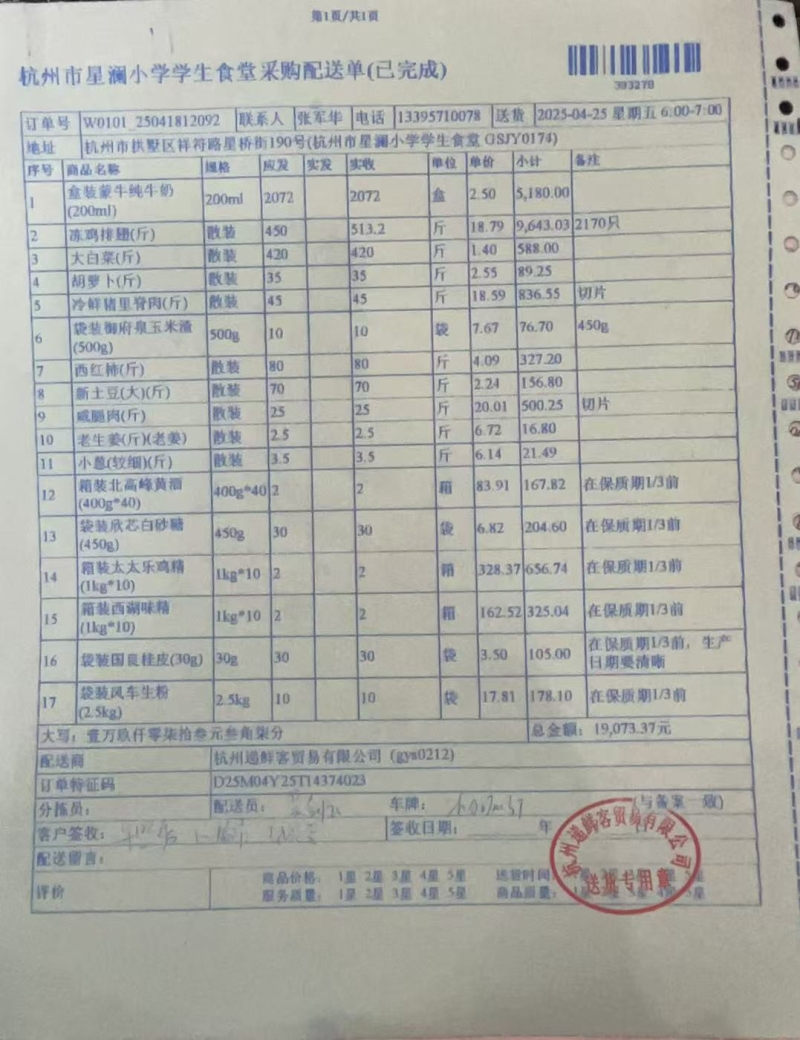 第1页/共1页
杭州市星澜小学学生食堂采购配送单(已完成)
393270
订单号 W0101_25041812092 联系人 张军华 电话 13395710078 送货 2025-04-25 星期五 6:00-7:00
地址 杭州市拱墅区祥符路星桥街190号(杭州市星澜小学学生食堂 GSJY0174)
序号 商品名称 规格 应发 实发 实收 单位 单价 小计 备注
1 盒装蒙牛纯牛奶(200ml) 200ml 2072 2072 盒 2.50 5,180.00
2 冻鸡排翅(斤) 散装 450 513.2 斤 18.79 9,643.03 2170只
3 大白菜(斤) 散装 420 420 斤 1.40 588.00
4 胡萝卜(斤) 散装 35 35 斤 2.55 89.25
5 冷鲜猪里脊肉(斤) 散装 45 45 斤 18.59 836.55 切片
6 袋装御府泉玉米渣(500g) 500g 10 10 袋 7.67 76.70 450g
7 西红柿(斤) 散装 80 80 斤 4.09 327.20
8 新土豆(大)(斤) 散装 70 70 斤 2.24 156.80
9 咸腿肉(斤) 散装 25 25 斤 20.01 500.25 切片
10 老生姜(斤)(老姜) 散装 2.5 2.5 斤 6.72 16.80
11 小葱(较细)(斤) 散装 3.5 3.5 斤 6.14 21.49
12 箱装北高峰黄酒(400g*40) 400g*40 2 2 箱 83.91 167.82 在保质期1/3前
13 袋装欣芯白砂糖(450g) 450g 30 30 袋 6.82 204.60 在保质期1/3前
14 箱装太太乐鸡精(1kg*10) 1kg*10 2 2 箱 328.37 656.74 在保质期1/3前
15 箱装西湖味精(1kg*10) 1kg*10 2 2 箱 162.52 325.04 在保质期1/3前
16 袋装国良桂皮(30g) 30g 30 30 袋 3.50 105.00 在保质期1/3前，生产日期要清晰
17 袋装风车生粉(2.5kg) 2.5kg 10 10 袋 17.81 178.10 在保质期1/3前
大写：壹万玖仟零柒拾叁元叁角柒分 总金额：19,073.37元
配送商 杭州递鲜客贸易有限公司（gys0212)
订单特征码 D25M04Y25T14374023
分拣员： 配送员： 车牌： (与备案一致)
客户签收： 签收日期： 年
配送留言：
评价 商品价格： 1星 2星 3星 4星 5星 送货时间
服务质量： 1星 2星 3星 4星 5星 商品质量： 1星 2星 3星 4星 5星
杭州递鲜客贸易有限公司
送货专用章